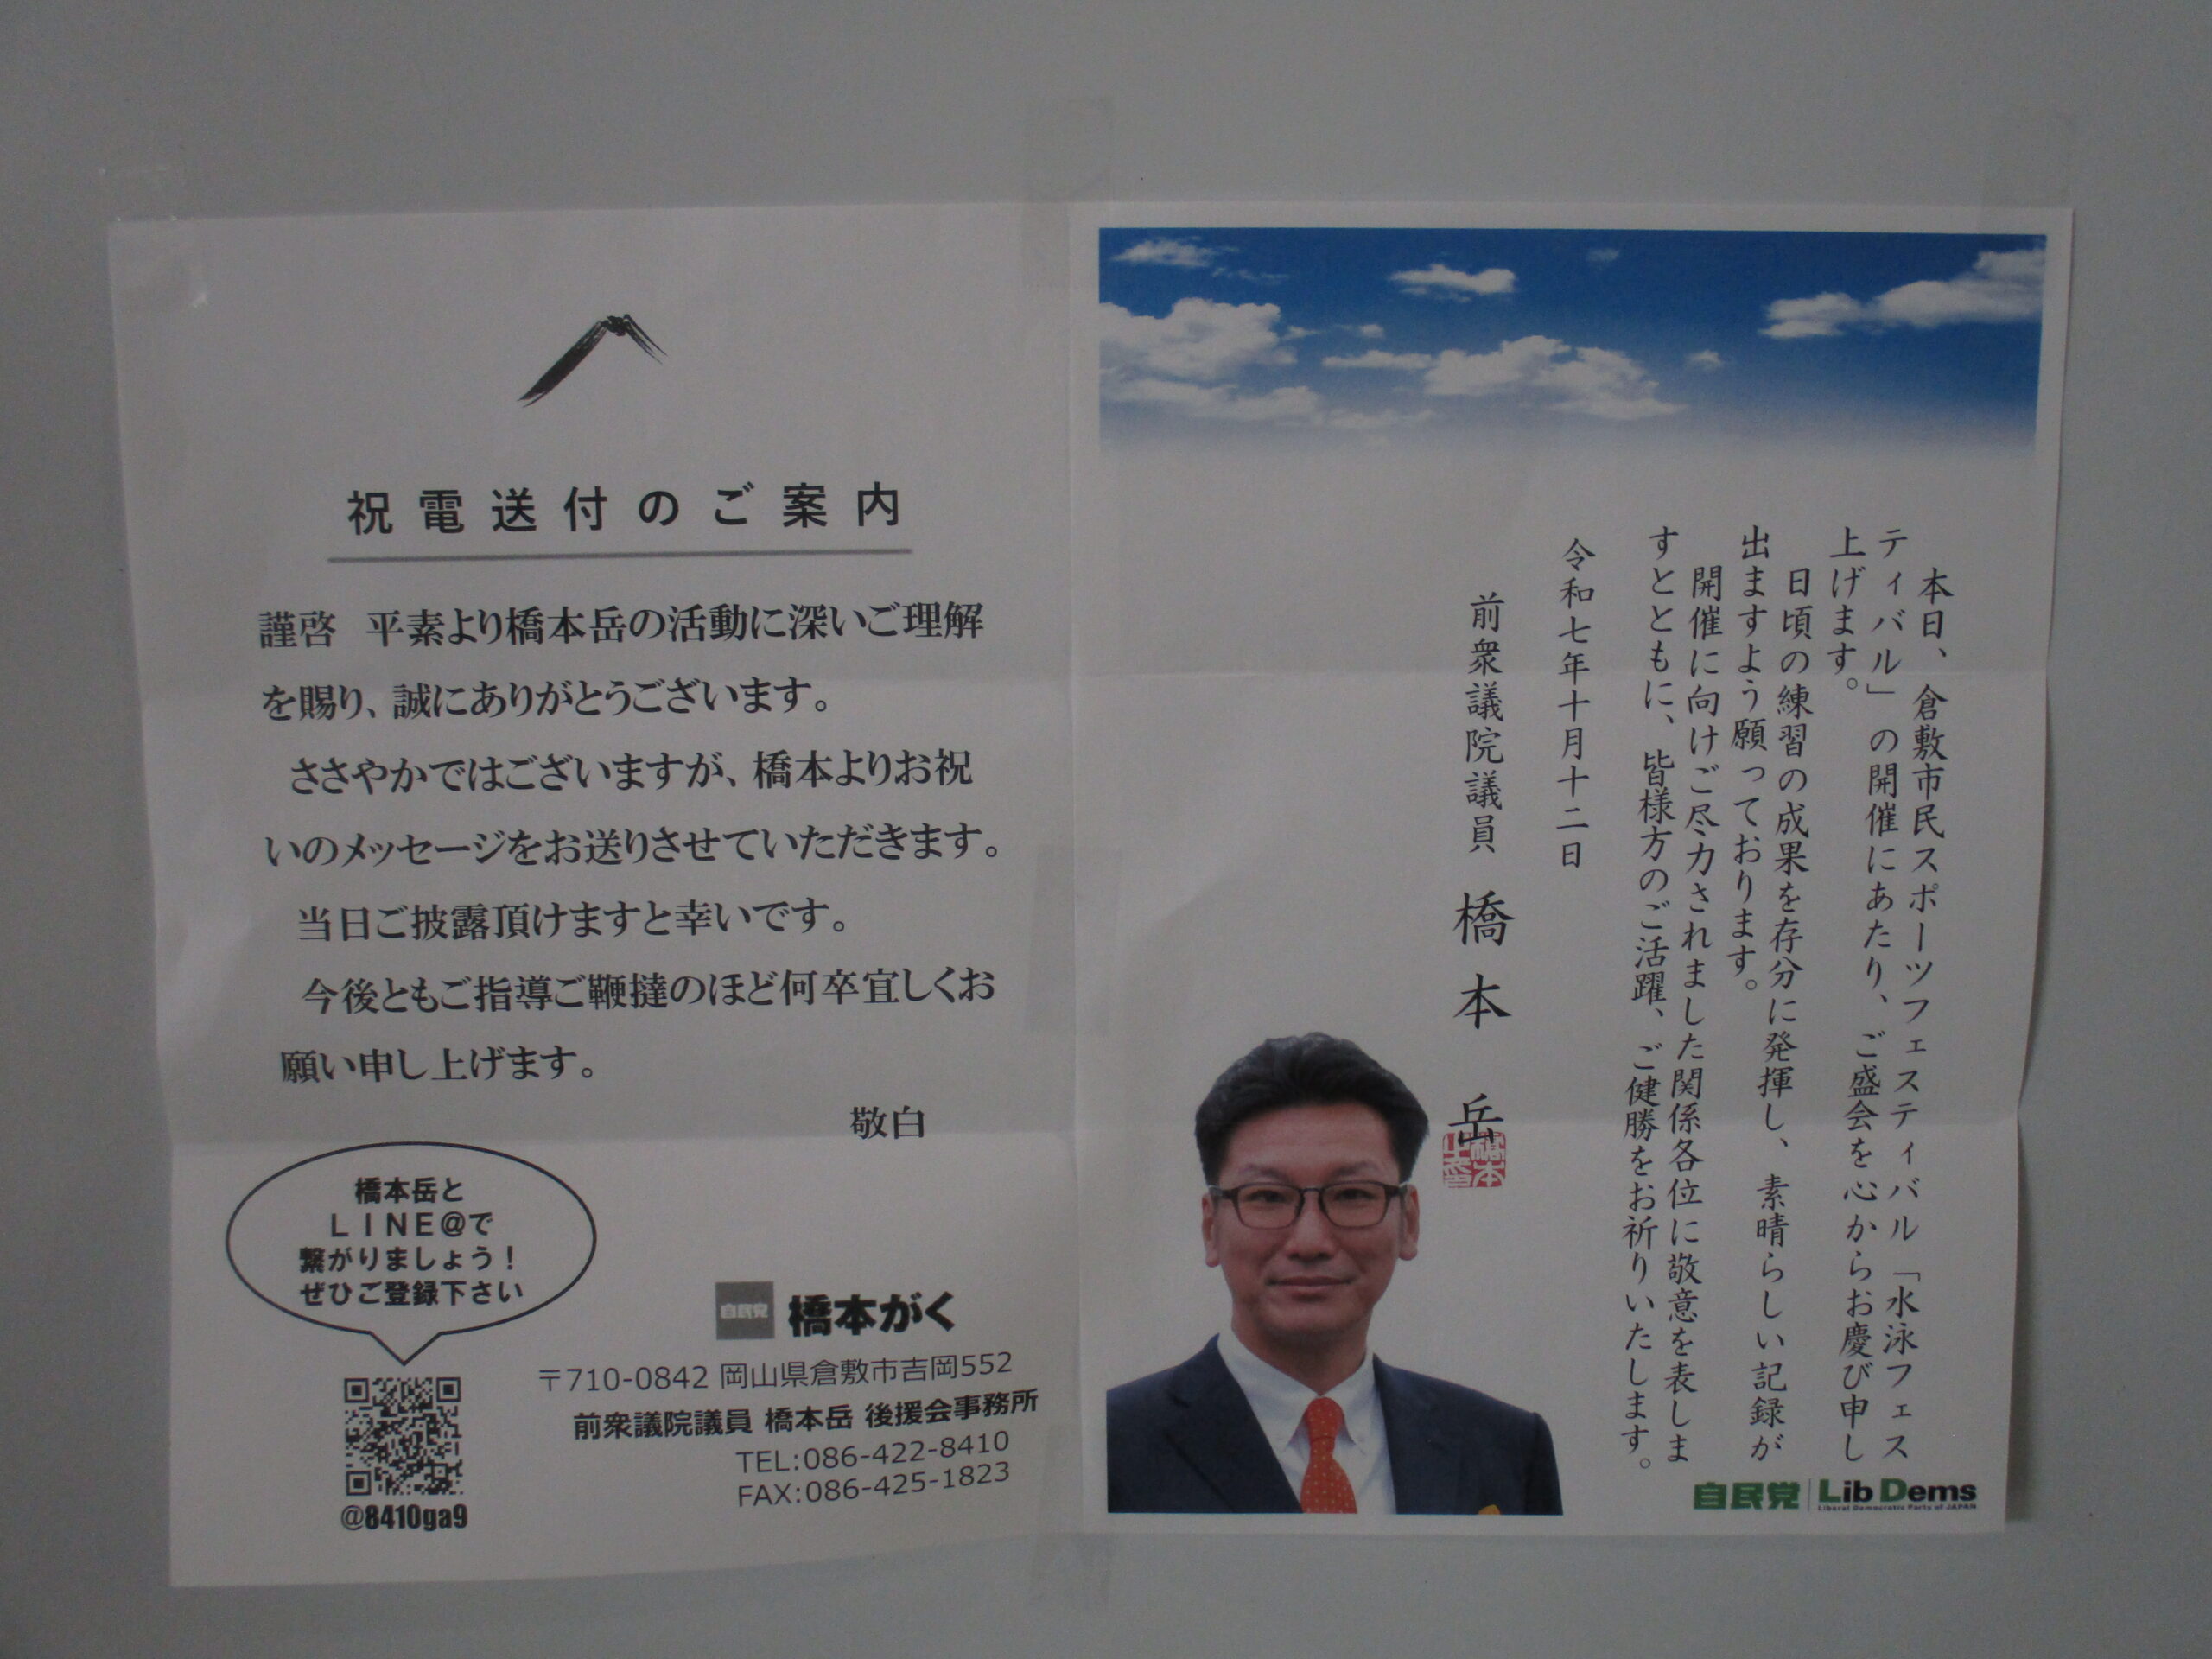 祝電送付のご案内
謹啓　平素より橋本岳の活動に深いご理解
を賜り、誠にありがとうございます。
ささやかではございますが、橋本よりお祝
いのメッセージをお送りさせていただきます。
当日ご披露頂けますと幸いです。
今後ともご指導ご鞭撻のほど何卒宜しくお
願い申し上げます。
敬白
橋本岳と
ＬＩＮＥ@で
繋がりましょう！
ぜひご登録下さい
@8410ga9
自民党 橋本がく
〒710-0842 岡山県倉敷市吉岡552
前衆議院議員 橋本岳 後援会事務所
TEL:086-422-8410
FAX:086-425-1823
本日、倉敷市民スポーツフェスティバル「水泳フェス
ティバル」の開催にあたり、ご盛会を心からお慶び申し
上げます。
日頃の練習の成果を存分に発揮し、素晴らしい記録が
出ますよう願っております。
開催に向けご尽力されました関係各位に敬意を表しま
すとともに、皆様方のご活躍、ご健勝をお祈りいたします。
令和七年十月十二日
前衆議院議員 橋本 岳
自民党 Lib Dems
Liberal Democratic Party of JAPAN